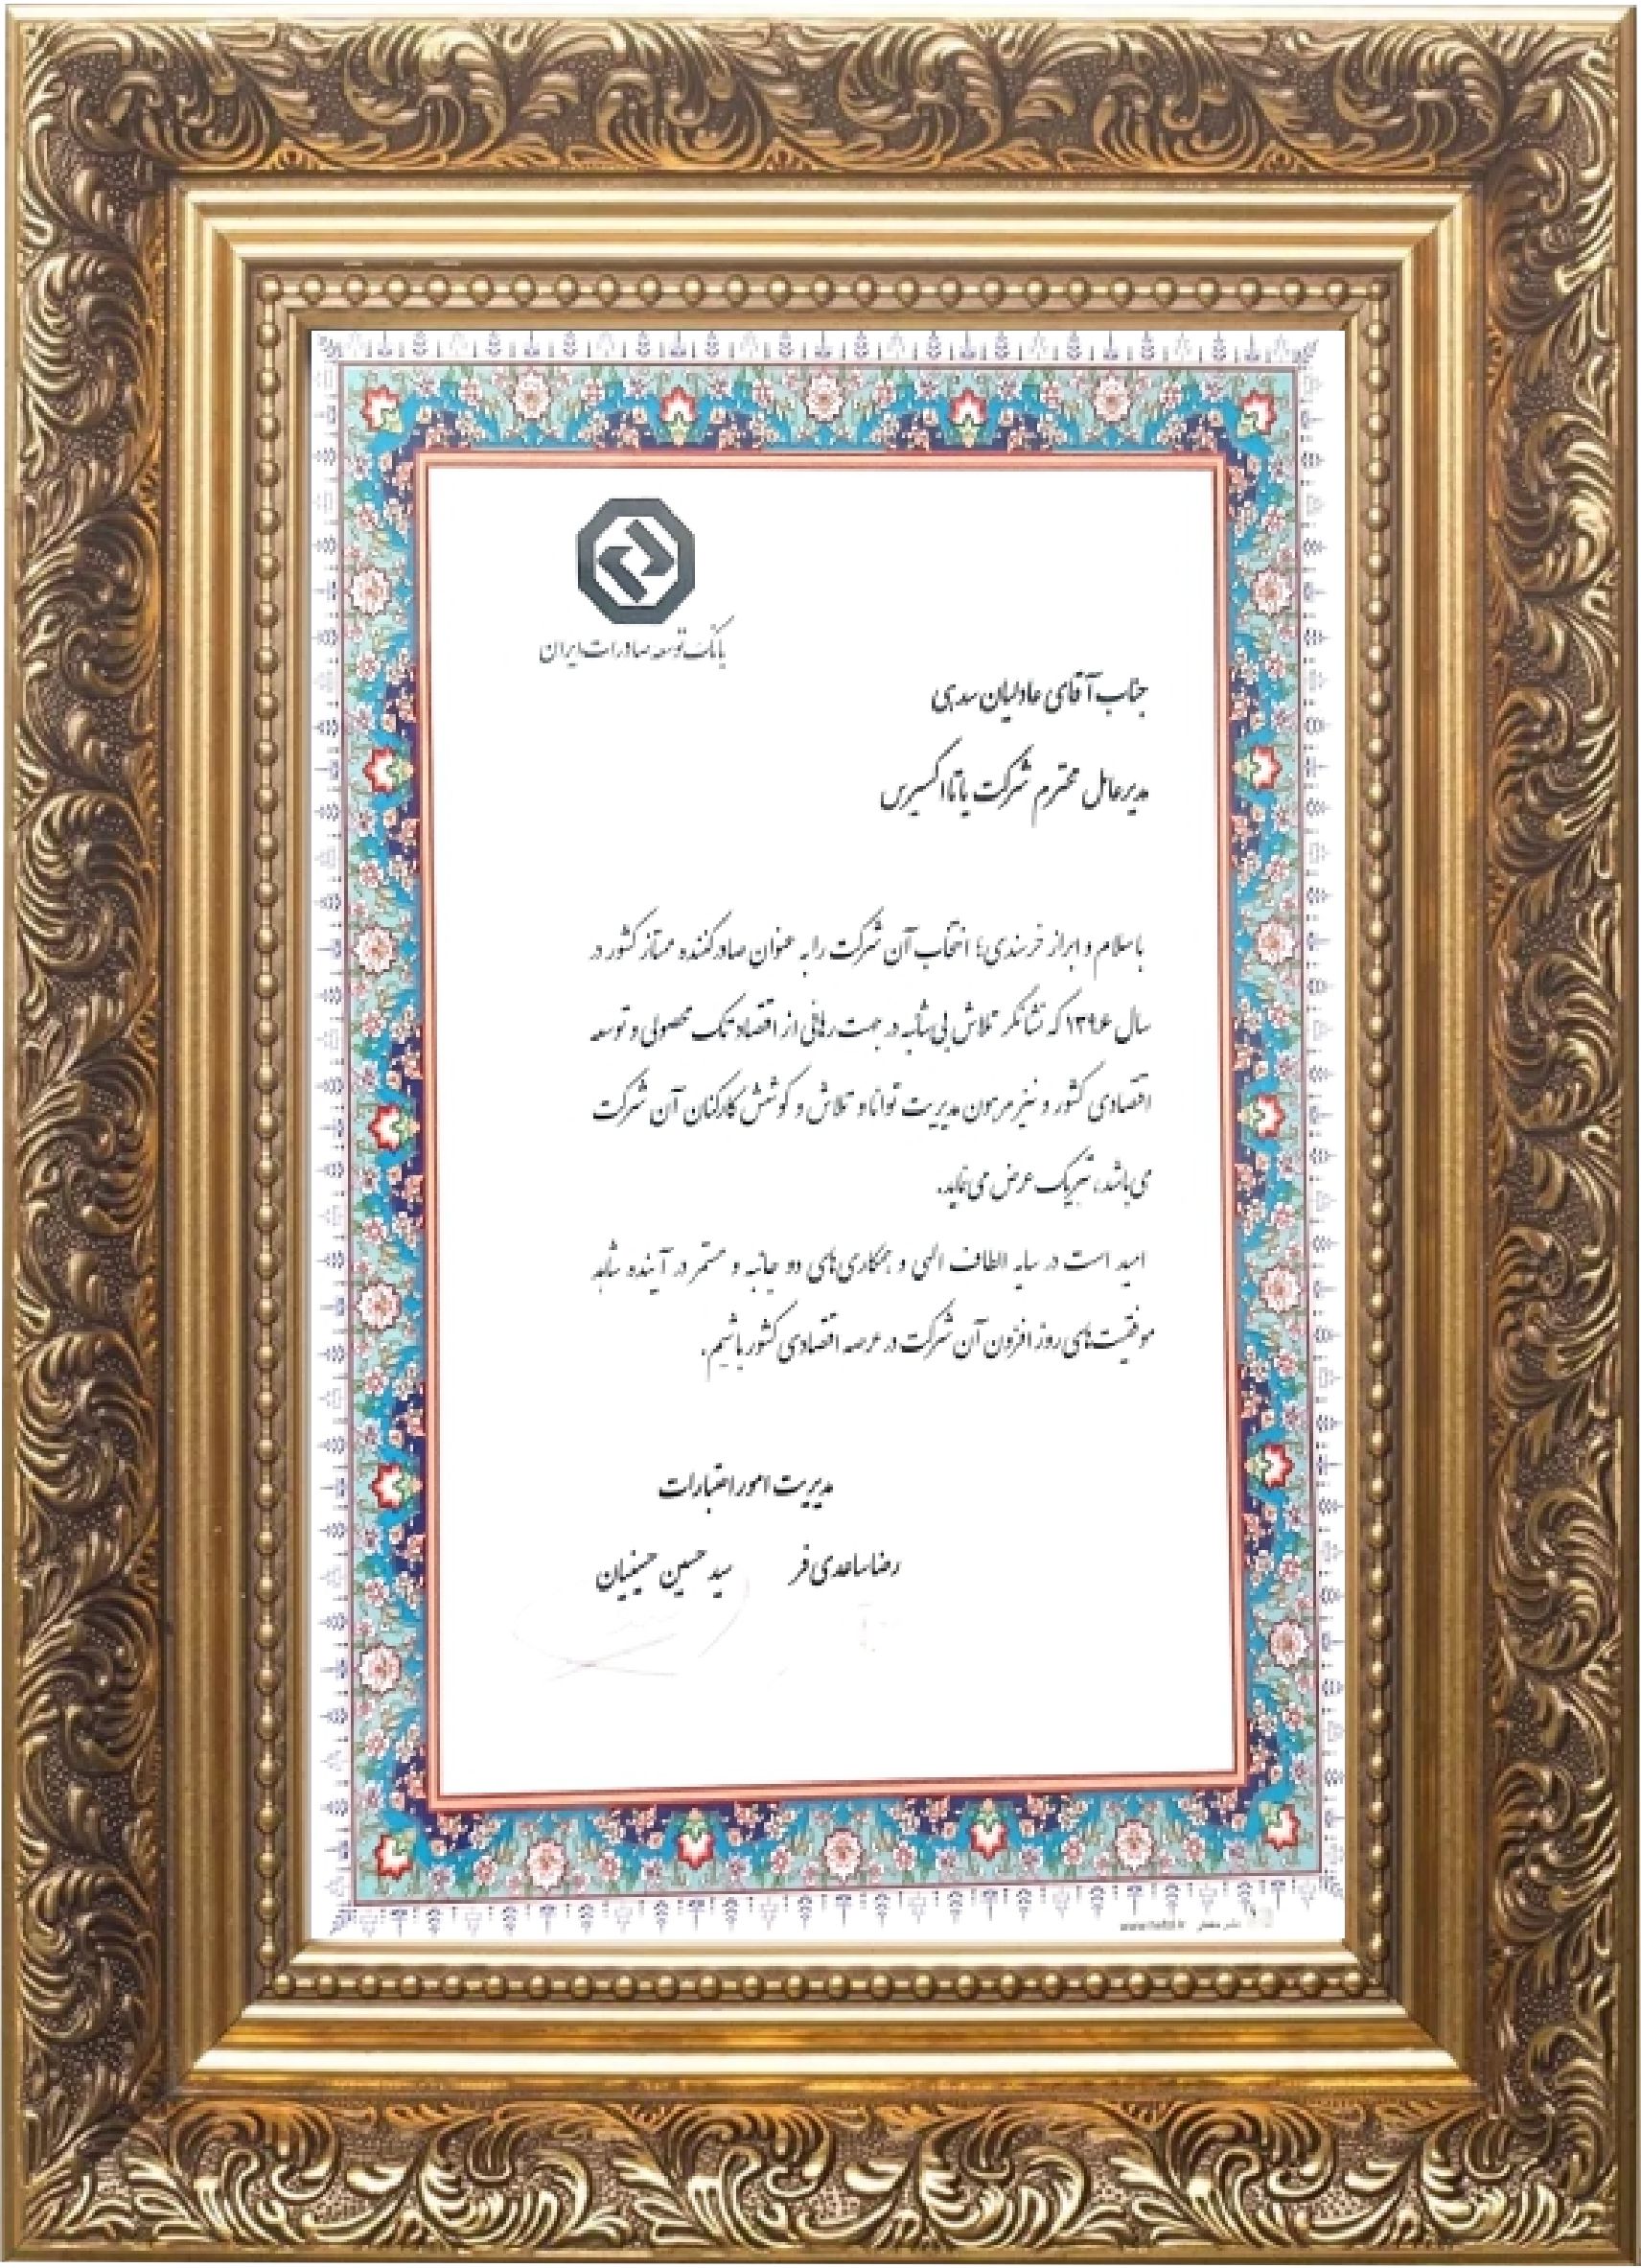 بانک توسعه صادرات ایران
جناب آقای عادلیان سدهی
مدیرعامل محترم شرکت یاتااکسپرس
با سلام و ابراز خرسندی؛ انتخاب آن شرکت را به عنوان صادرکننده ممتاز کشور در
سال ۱۳۹۶ که نشانگر تلاش بی شائبه در جهت رهائی از اقتصاد تک محصولی و توسعه
اقتصادی کشور و نیز مرهون مدیریت توانا و تلاش و کوشش کارکنان آن شرکت
می باشد، تبریک عرض می نماید.
امید است در سایه الطاف الهی و همکاری های دو جانبه و مستمر در آینده شاهد
موفقیت های روز افزون آن شرکت در عرصه اقتصادی کشور باشیم.
مدیریت امور اعتبارات
رضا ساعدی فر سید حسین حسینیان